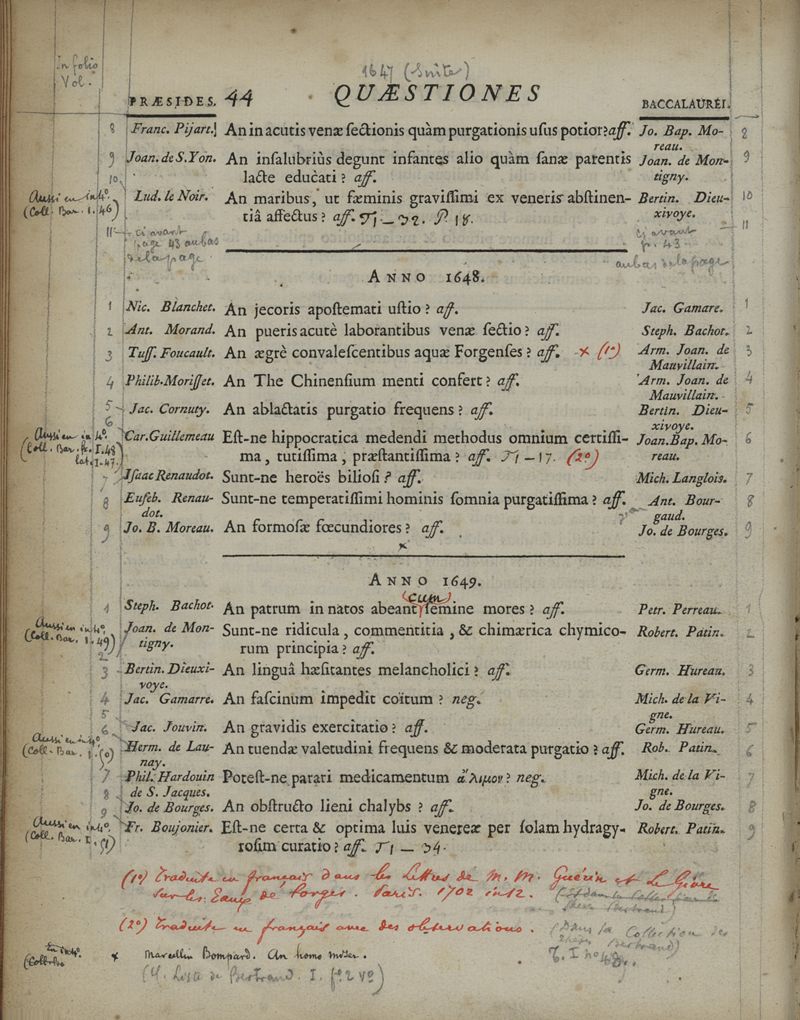 In folio
Vol.
1647 (Suite)
PRÆSIDES. 44 QUÆSTIONES BACCALAUREI.
8 Franc. Pijart. An in acutis venæ sectionis quàm purgationis usus potior? aff. Jo. Bap. Mo- 8
reau.
9 Joan. de S. Yon. An insalubriùs degunt infantes alio quàm sanæ parentis Joan. de Mon- 9
10 lacte educati? aff. tigny.
Aussi en in 4º. Lud. le Noir. An maribus, ut fæminis gravissimi ex veneris abstinen- Bertin. Dieu- 10
(Coll. Bar. 1. 46) tiâ affectus? aff. xivoye.
11 ci avant ci avant 11
page 43 au bas p. 43
de la page au bas de la page
ANNO 1648.
1 Nic. Blanchet. An jecoris apostemati ustio? aff. Jac. Gamare. 1
2 Ant. Morand. An pueris acutè laborantibus venæ sectio? aff. Steph. Bachot. 2
3 Tuss. Foucault. An ægrè convalescentibus aquæ Forgenses? aff. (1º) Arm. Joan. de 3
Mauvillain.
4 Philib. Morisset. An The Chinensium menti confert? aff. Arm. Joan. de 4
Mauvillain.
5 Jac. Cornuty. An ablactatis purgatio frequens? aff. Bertin. Dieu- 5
6 xivoye.
Aussi en in 4º. Car. Guillemeau Est-ne hippocratica medendi methodus omnium certissi- Joan. Bap. Mo- 6
ma, tutissima, præstantissima? aff. T1 - 17. (2º) reau.
7 Isaac Renaudot. Sunt-ne heroës biliosi? aff. Mich. Langlois. 7
8 Euseb. Renau- Sunt-ne temperatissimi hominis somnia purgatissima? aff. Ant. Bour- 8
dot. gaud.
9 Jo. B. Moreau. An formosæ fœcundiores? aff. Jo. de Bourges. 9
ANNO 1649.
(cum)
1 Steph. Bachot. An patrum in natos abeant semine mores? aff. Petr. Perreau. 1
Aussi en in 4º. Joan. de Mon- Sunt-ne ridicula, commentitia, & chimærica chymico- Robert. Patin. 2
(Coll. Bar. 1. 49) tigny. rum principia? aff.
2
3 Bertin. Dieuxi- An linguâ hæsitantes melancholici? aff. Germ. Hureau. 3
voye.
4 Jac. Gamarre. An fascinum impedit coïtum? neg. Mich. de la Vi- 4
5 gne.
6 Jac. Jouvin. An gravidis exercitatio? aff. Germ. Hureau. 5
Aussi en in 4º. Herm. de Lau- An tuendæ valetudini frequens & moderata purgatio? aff. Rob. Patin. 6
(Coll. Bar. 1. 50) nay.
7 Phil. Hardouin Potest-ne parari medicamentum ἄλιμον? neg. Mich. de la Vi- 7
8 de S. Jacques. gne.
9 Jo. de Bourges. An obstructo lieni chalybs? aff. Jo. de Bourges. 8
Aussi en in 4º. Fr. Boujonier. Est-ne certa & optima luis venereæ per solam hydragy- Robert. Patin. 9
(Coll. Bar. 1. 51) rosim curatio? aff. T1 — 24.
(1º) Traduite en français dans les Lettres de M. M. Guérin et Le Givre
sur les Eaux de Forges. Paris. 1702 in 12.
(2º) Traduite en français avec des observations. (Dans la Collection des
Thèses Bertrand)
T. I nº 48.
Marcellin Bompard. An homo
(V. Liste de Bertrand. I. fº 2 vº)